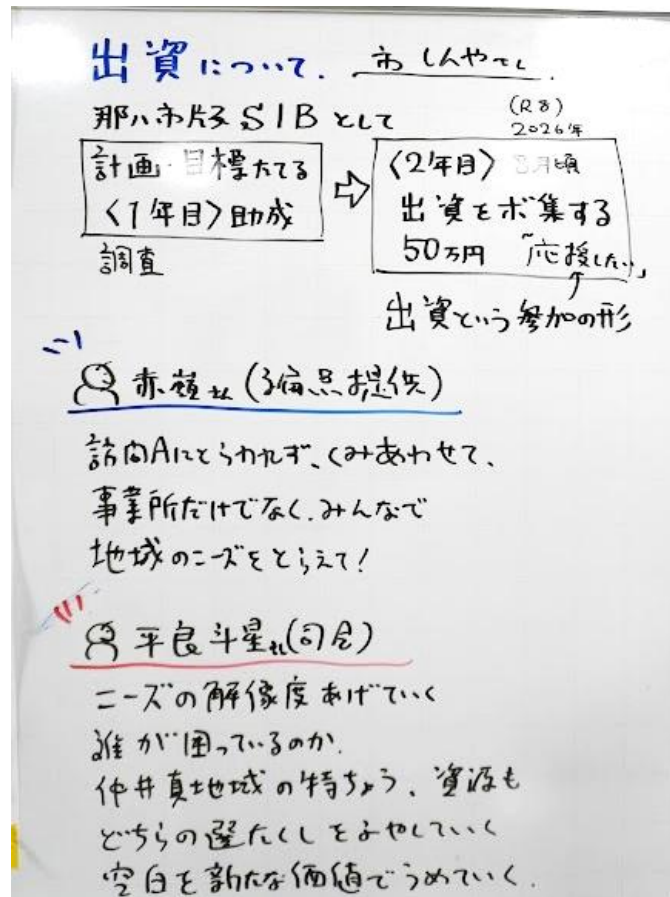 出資について. 市 しんやさん
那ハ市版 SIB として
(R8)
2026年
計画・目標たてる
〈1年目〉助成
調査
⇨
〈2年目〉 8月頃
出資をボ集する
50万円 「応援したい」
出資という参加の形
赤嶺さん (話題提供)
訪問Aにとらわれず、くみあわせて、
事業所だけでなく、みんなで
地域のニーズをとらえて!
平良斗星さん(司会)
ニーズの解像度あげていく
誰が困っているのか.
仲井真地域の特ちょう、資源も
どちらの選たくしをふやしていく
空白を新たな価値でうめていく.